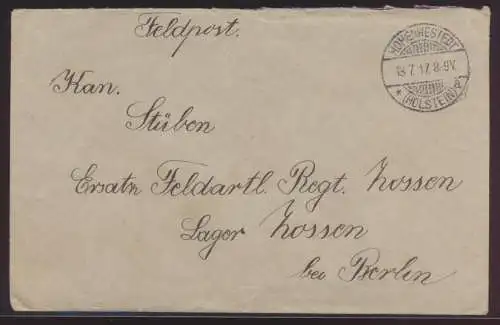 Feldpost.
HOHENWESTEDT
18.7.17.8-9V.
* (HOLSTEIN)
Kan.
Stüben
Ersatz Feldartl. Regt. Zossen
Lager Zossen
bei Berlin